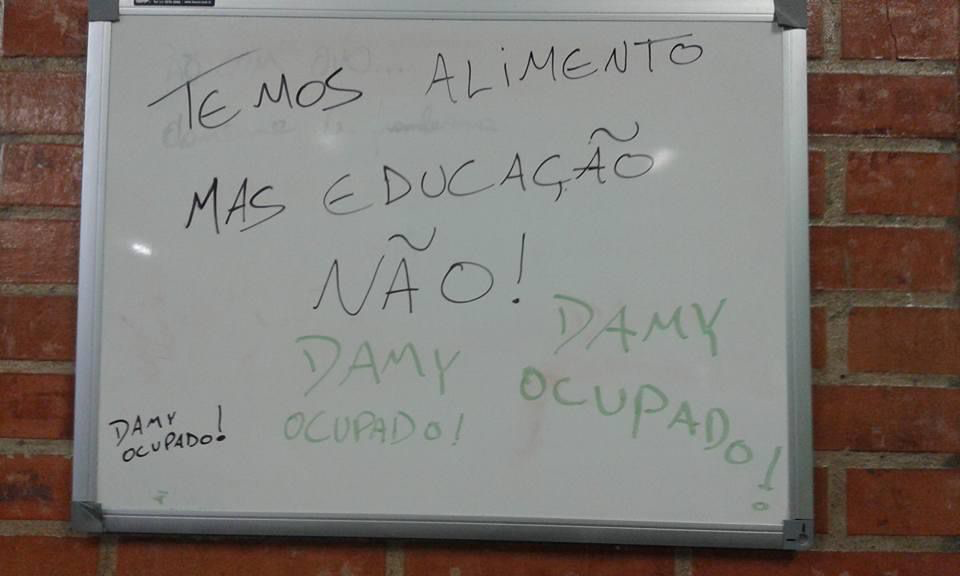 TEMOS ALIMENTO
MAS EDUCAÇÃO
NÃO!
DAMY
OCUPADO!
DAMY
OCUPADO!
DAMY
OCUPADO!